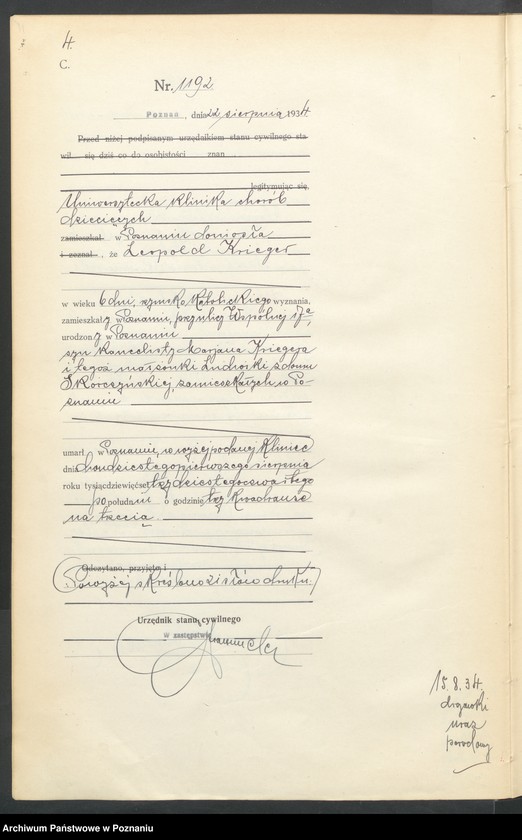 4.
C.
Nr. 1192
Poznań, dnia 22 sierpnia 1934
Przed niżej podpisanym urzędnikiem stanu cywilnego sta-
wił się dziś co do osobistości znan
legitymując się,
Uniwersytecka klinika chorób
dziecięcych
zamieszkał w Poznaniu doniosła
i zeznał, że Leopold Krieger
w wieku 6 dni, rzymsko katolickiego wyznania,
zamieszkały w Poznaniu, przy ulicy Wspólnej 17a,
urodzony w Poznaniu
syn kancelisty Marjana Kriegera
i tegoż małżonki Ludwiki z domu
Skorczyńskiej, zamieszkałych w Po-
znaniu
umarł w Poznaniu, w wyżej podanej klinice
dnia dwudziestego pierwszego sierpnia
roku tysiącdziewięćset trzydziestego czwartego
po południu o godzinie trzy kwadranse
na trzecią.
Odczytano, przyjęto i
(Powyżej skreślono zisłów druku.)
Urzędnik stanu cywilnego
w zastępstwie
15.8.34.
drgawki
uraz
porodowy
Archiwum Państwowe w Poznaniu